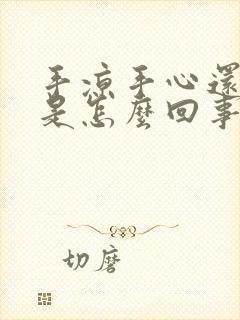 手凉手心還
是怎麼回事
切磨